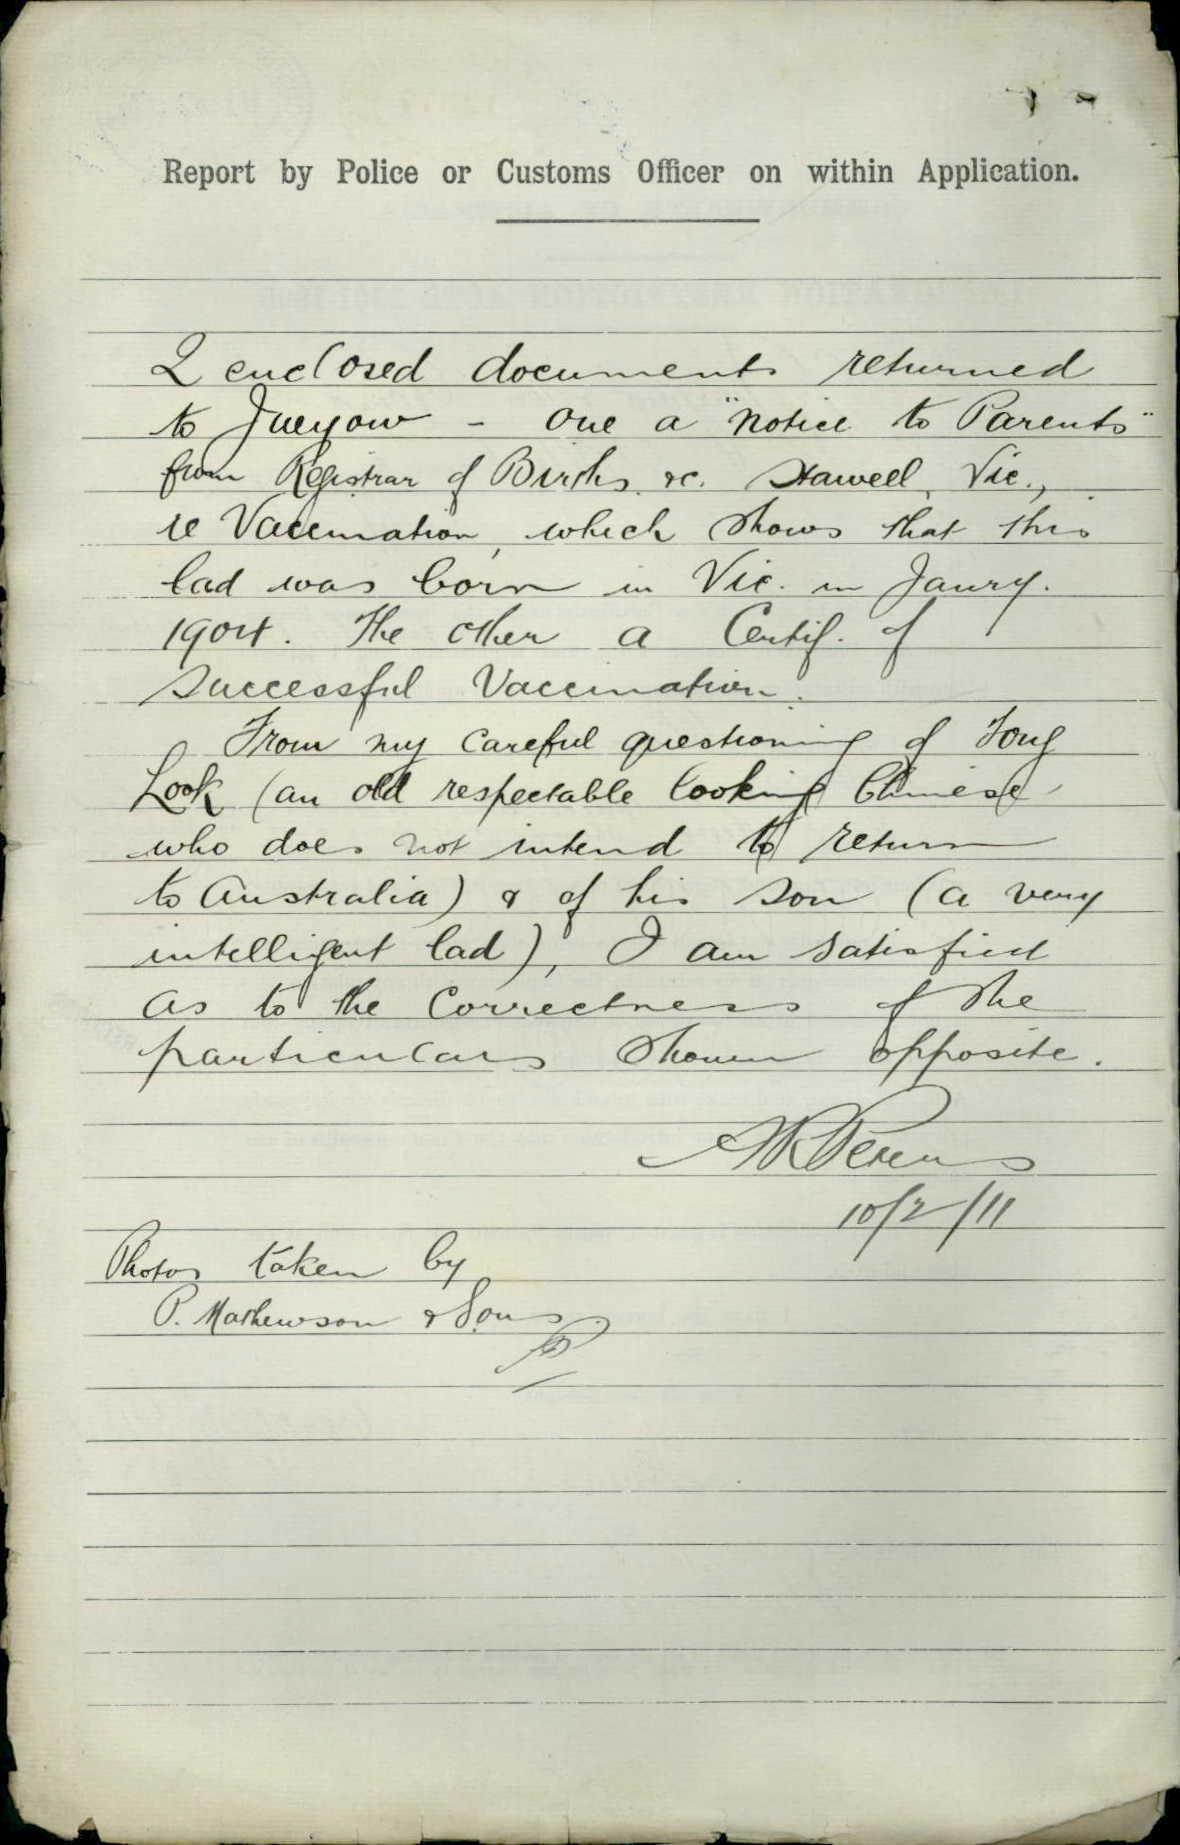 Report by Police or Customs Officer on within Application.
2 enclosed documents returned
to Jueyow - one a "Notice to Parents"
from Registrar of Births &c. Stawell, Vic.,
re Vaccination, which shows that this
lad was born in Vic. in Janry.
1904. The other a Certif. of
Successful Vaccination.
From my careful questioning of Fong
Look (an old respectable looking Chinese
who does not intend to return
to Australia) & of his son (a very
intelligent lad), I am satisfied
as to the correctness of the
particulars shown opposite.
10/2/11
Photos taken by
P. Mathewson & Sons.